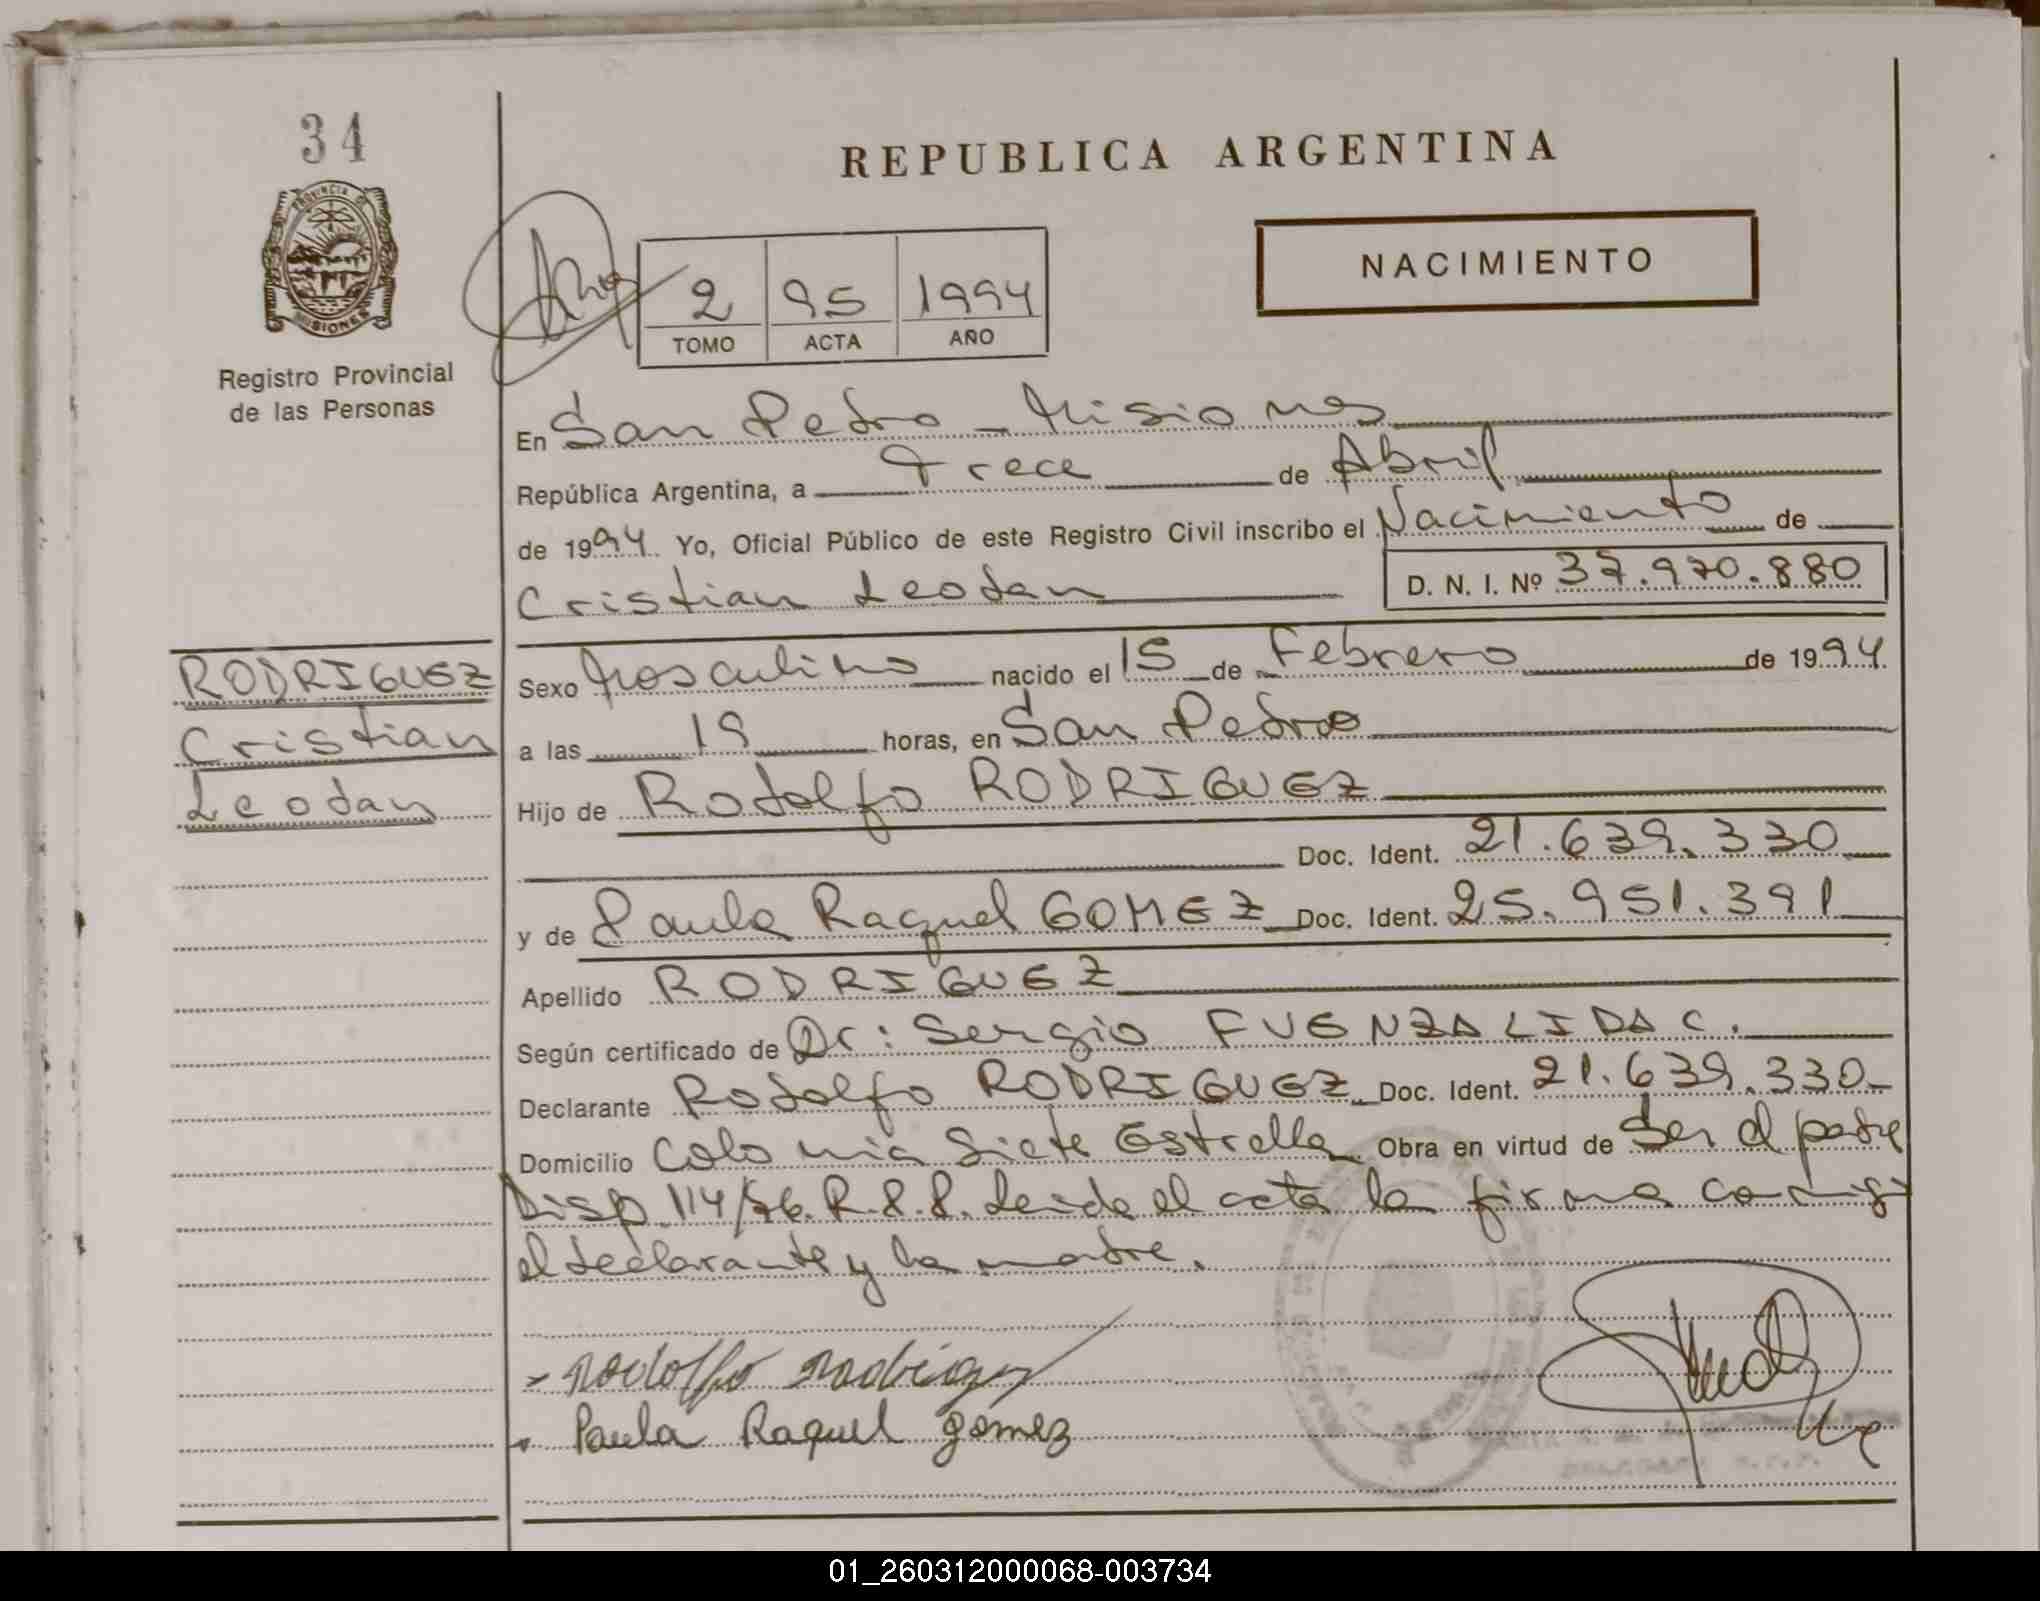 34
PROVINCIA DE
MISIONES
Registro Provincial
de las Personas
REPUBLICA ARGENTINA
NACIMIENTO
2 95 1994
TOMO ACTA AÑO
En San Pedro - Misiones
República Argentina, a Trece de Abril
de 1994. Yo, Oficial Público de este Registro Civil inscribo el Nacimiento de
Cristian Leodan D. N. I. Nº 37.970.880
RODRIGUEZ
Cristian
Leodan
Sexo Masculino nacido el 15 de Febrero de 1994.
a las 19 horas, en San Pedro
Hijo de Rodolfo RODRIGUEZ
Doc. Ident. 21.639.330
y de Paula Raquel GOMEZ Doc. Ident. 25.951.391
Apellido RODRIGUEZ
Según certificado de Dr: Sergio FUENZALIDA C.
Declarante Rodolfo RODRIGUEZ Doc. Ident. 21.639.330-
Domicilio Colonia Siete Estrella Obra en virtud de Ser el padre
Disp. 114/76. R.P.P. Leida el acta la firma conmigo
el declarante y la madre.
Rodolfo Rodriguez
Paula Raquel gomez
01_260312000068-003734